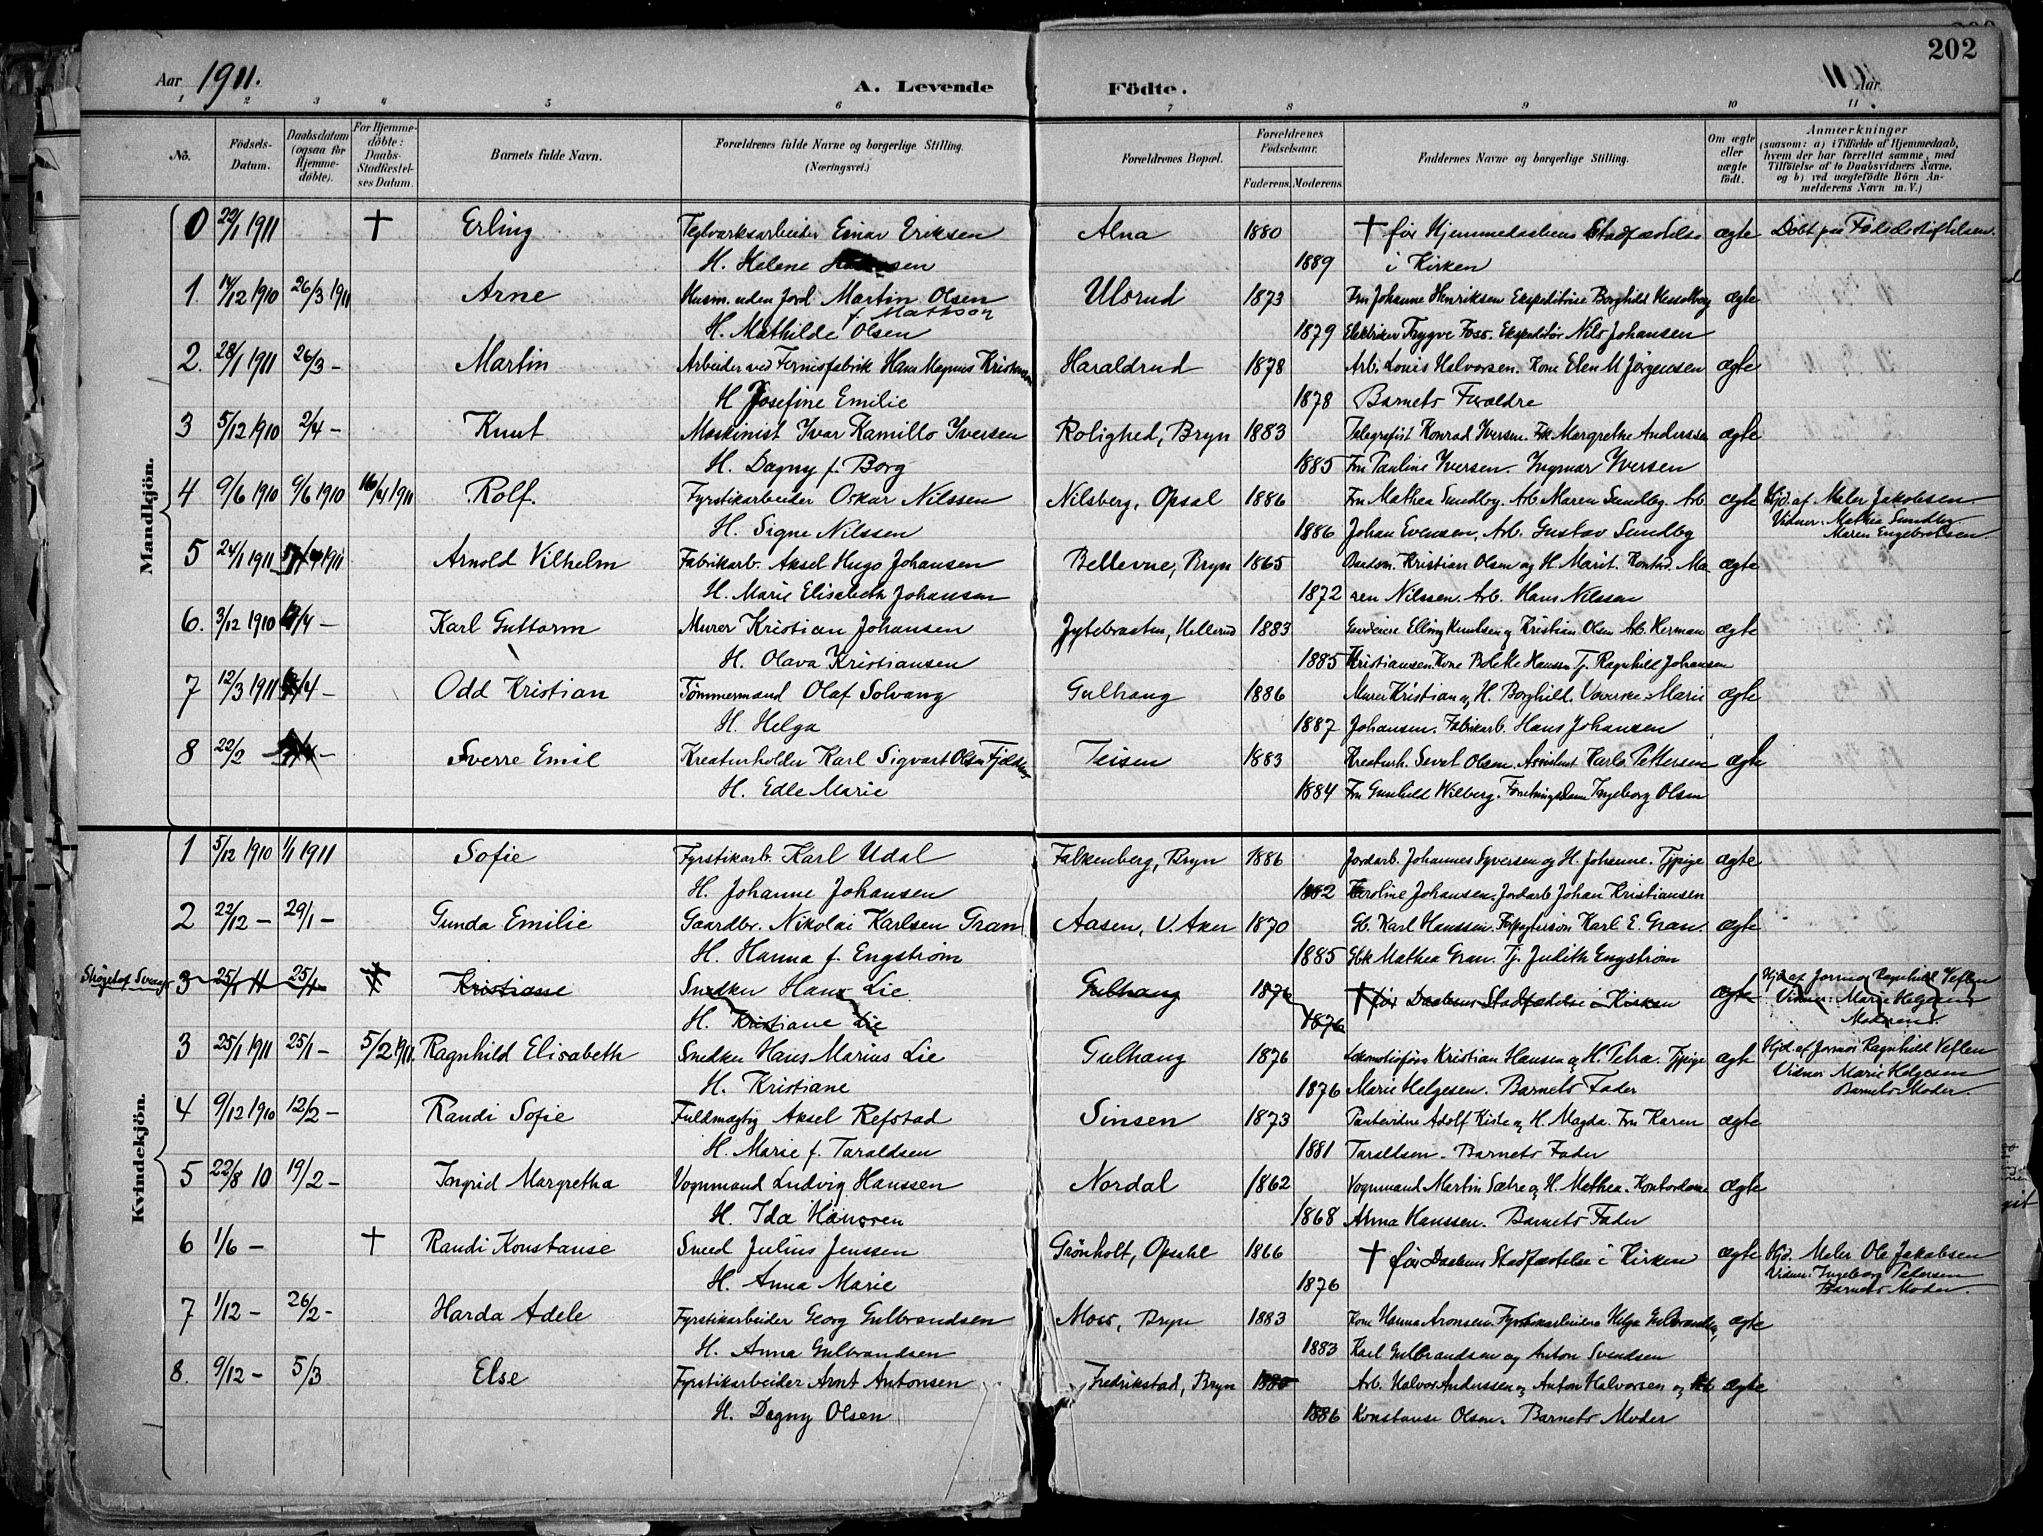 202
Aar 1911. A. Levende Födte. 11 Aar
1 2 3 4 5 6 7 8 9 10 11
No. Födsels-Datum. Daabsdatum (ogsaa for Hjemme-döbte). For Hjemme-döbte: Daabs-Stadfæstel-ses Datum. Barnets fulde Navn. Forældrenes fulde Navne og borgerlige Stilling. (Næringsvei.) Forældrenes Bopæl. Forældrenes Födselsaar. Faderens. Moderens. Faddernes Navne og borgerlige Stilling. Om ægte eller uægte födt. Anmærkninger (saasom: a) i Tilfælde af Hjemmedaab, hvem der har forrettet samme, med Tilföielse af to Daabsvidners Navne, og b) ved uægtefödte Börn An-melderens Navn m. V.)
Mandkjön.
0 22/1 1911 † Erling Teglværksarbeider Einar Eriksen Alna 1880 † før Hjemmedaabens Stadfæstelse ægte Døbt paa Fødselsstiftelsen.
H. Helene 1889 i Kirken
1. 14/12 1910 26/3 1911 Arne Husm. uden Jord Martin Olsen Ulsrud 1873 Fru Johanne Henriksen Ekspeditrise Borghild Hesselberg ægte
H. Mathilde Olsen f. Matison 1879 Elektriker Trygve Foss. Ekspeditør Nils Johansen
2. 28/1 1911 26/3 – Martin Arbeider ved Fernisfabrik Hans Magnus Kristensen Haraldrud 1878 Arb. Louis Halvorsen. Kone Elen M Jörgensen ægte
H Josefine Emilie 1878 Barnets Forældre
3 5/12 1910 2/4 – Knut Maskinist Ivar Kamillo Iversen Rolighed, Bryn 1883 Telegrafist Konrad Iversen. Frk Margrethe Anderssen ægte
H. Dagny f. Borg 1885 Fru Pauline Iversen – Ingmar Iversen
4 9/6 1910 9/6 1910 16/4 1911 Rolf. Fyrstikarbeider Oskar Nilssen Nilsberg, Opsal 1886 Fru Mathea Sundby. Arb. Maren Sundby. Arb. ægte Hjd. af. Maler Jakobsen
H. Signe Nilssen 1886 Johan Evensen, Arb. Gustav Sundby Vidner: Mathea Sundby
Maren Engebretsen
5 24/1 1911 17/4 1911 Arnold Vilhelm Fabrikarb. Aksel Hugo Johansen Bellevue, Bryn 1865 Kristian Olsen og H. Marit. Ma- ægte
H. Marie Elisabeth Johansen 1872 ren Nilssen. Arb. Hans Nilssen
6. 3/12 1910 /4 – Karl Guttorm Murer Kristian Johansen Jytebraaten, Hellerud 1883 Gardeier Elling Knutsen og Kristian Olsen Arb. Herman ægte
H. Olava Kristiansen 1885 Kristiansen. Kone Bolette Hansen Tj. Ragnhild Johansen
7 12/3 1911 /4 – Odd Kristian Tömmermand Olaf Solvang Gulhaug 1886 Murer Kristian og H. Borghild. Væverske Marie ægte
H. Helga 1887 Johansen. Fabrikarb. Hans Johansen
8 22/2 – /4 – Sverre Emil Kreaturholder Karl Sigvart Olsen Teisen 1883 Kreaturh. Sevat Olsen. Assistent Karls Pettersen ægte
H. Edle Marie 1884 Fru Gunhild Wilberg. Forretningsdame Ingeborg Olsen
Kvindekjön.
1 5/12 1910 1/1 1911 Sofie Fyrstikarb. Karl Udal Falkenberg, Bryn 1886 Jordarb. Johannes Syversen og H. Johanne. Tjpige ægte
H. Johanne Johansen 1882 Karoline Johansen. Jordarb Johan Kristiansen
2 22/12 – 29/1 – Gunda Emilie Gaardbr. Nikolai Karlsen Gran Aasen, V. Aker 1870 Gb. Karl Hanssen. Forpagtersøn Karl E. Gran. ægte
H. Hanna f. Engström 1885 Gbk Mathea Gran. Tj. Judith Engström
3 25/1 11 25/1 † Kristiane Snedker Hans Lie Gulhaug 1876 † før Daabens Stadfæstelse i Kirken ægte Hjd af Jormor Ragnhild Veflen
H. Kristiane Lie 1876 Vidner: Marie Helgesen
Moderen
3 25/1 1911 25/1 – 5/2 1911 Ragnhild Elisabeth Snedker Hans Marius Lie Gulhaug 1876 Lokomotivfører Kristian Hansen og H. Petra. Tjpige ægte Hjd. af Jormor Ragnhild Veflen
H. Kristiane 1876 Marie Helgesen. Barnets Fader Vidner Marie Helgesen
Barnets Moder.
4 9/12 1910 12/2 – Randi Sofie Fuldmægtig Aksel Refstad Sinsen 1873 Adolf Kiste og H. Magda. Fru Karen ægte
H. Marie f. Taraldsen 1881 Taraldsen – Barnets Fader
5 22/8 10 19/2 – Ingrid Margretha Vognmand Ludvig Hanssen Nordal 1862 Vognmand Martin Sætre og H. Mathea. Kontordame ægte
H. Ida Hanssen 1868 Anna Hanssen. Barnets Fader
6 1/6 – † Randi Konstanse Smed Julius Jenssen Grönholt, Opsahl 1866 † før Daabens Stadfæstelse i Kirken ægte Hjd. Maler Ole Jakobsen
H. Anna Marie 1876 Vidner: Ingeborg Pedersen
Barnets Moder.
7 1/12 – 26/2 – Harda Adele Fyrstikarbeider Georg Gulbrandsen Moss, Bryn 1883 Kone Hanna Aronsen. Fyrstikarbeiderne Helga Gulbrandsen, ægte
H. Anna Gulbrandsen 1883 Karl Gulbrandsen og Anton Svendsen
8. 9/12 – 5/3 Else Fyrstikarbeider Arnt Antonsen Fredrikstad, Bryn 1880 Arb. Halvor Anderssen og Anton Halvorsen og Arb ægte
H. Dagny Olsen 1886 Konstanse Olsen. Barnets Moder